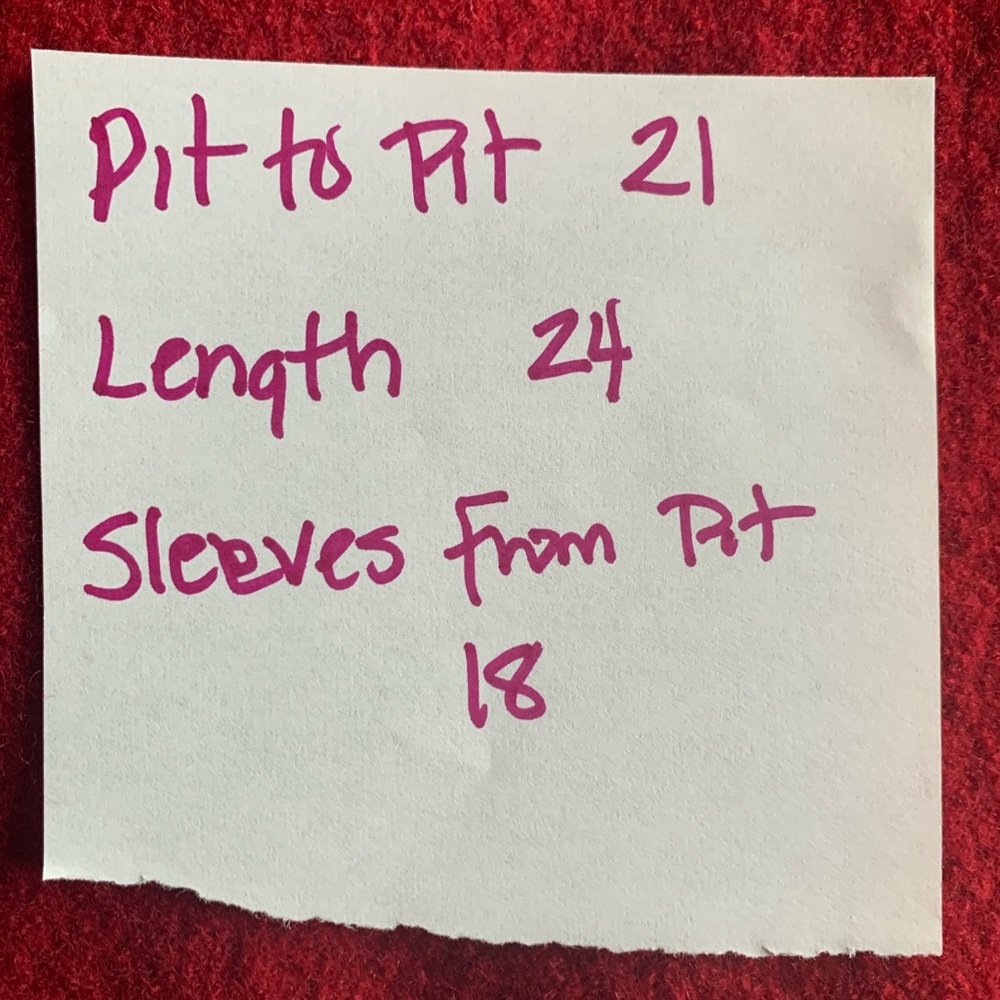 Pit to Pit 21
Length 24
Sleeves from Pit
18